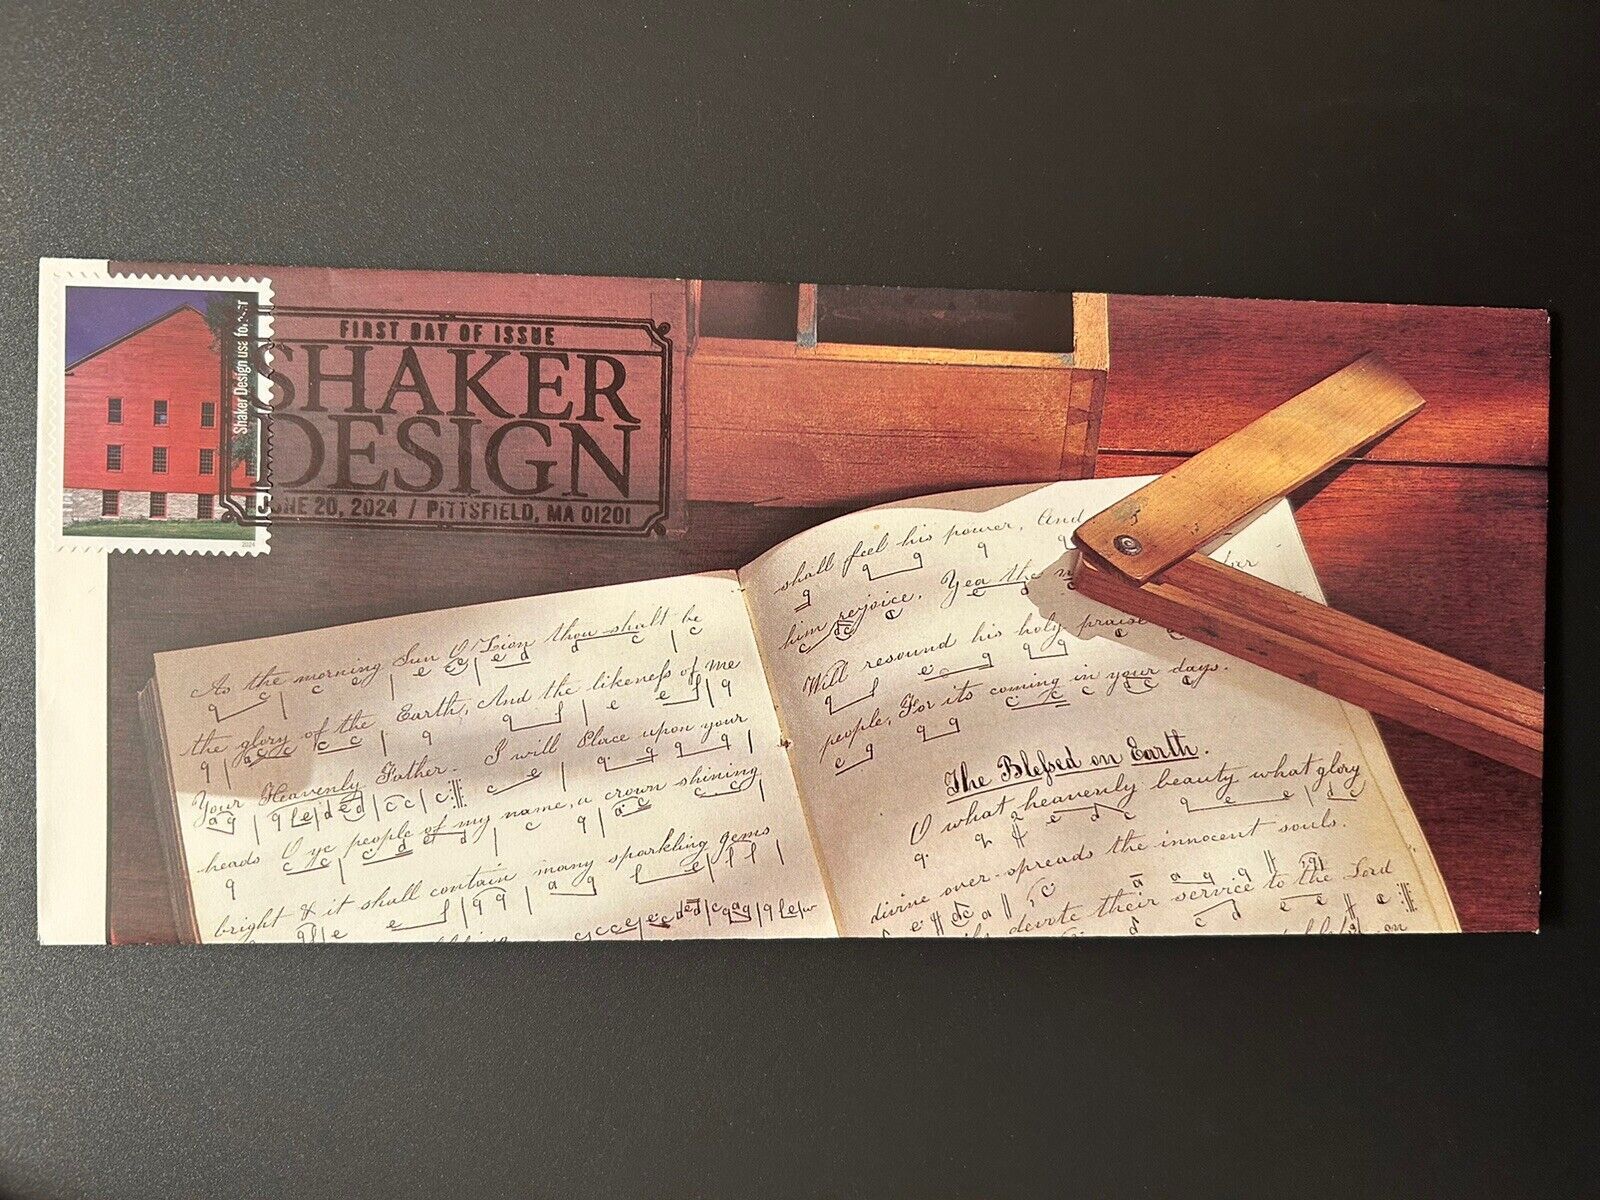 Shaker Design use forever
2024
FIRST DAY OF ISSUE
SHAKER
DESIGN
JUNE 20, 2024 / PITTSFIELD, MA 01201
As the morning Sun O Zion thou shalt be
the glory of the Earth, And the likeneſs of me
Your Heavenly Father. I will Place upon your
heads O ye people of my name, a crown shining
bright & it shall contain many sparkling gems
shall feel his power, And
him rejoice. Yea the
Will resound his holy praise
people, For its coming in your days.
The Bleſsed on Earth.
O what heavenly beauty what glory
divine over-spreads the innocent souls.
devote their service to the Lord
on